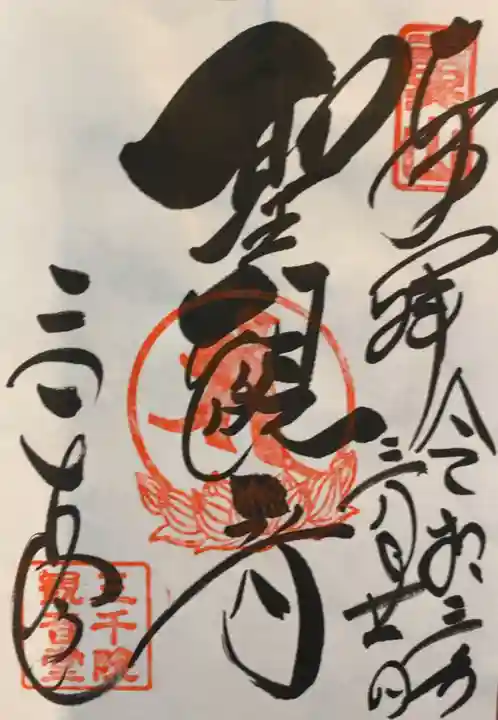 奉拝
令和三年
三月廿一日
聖観音
三千院
三千院
観音堂